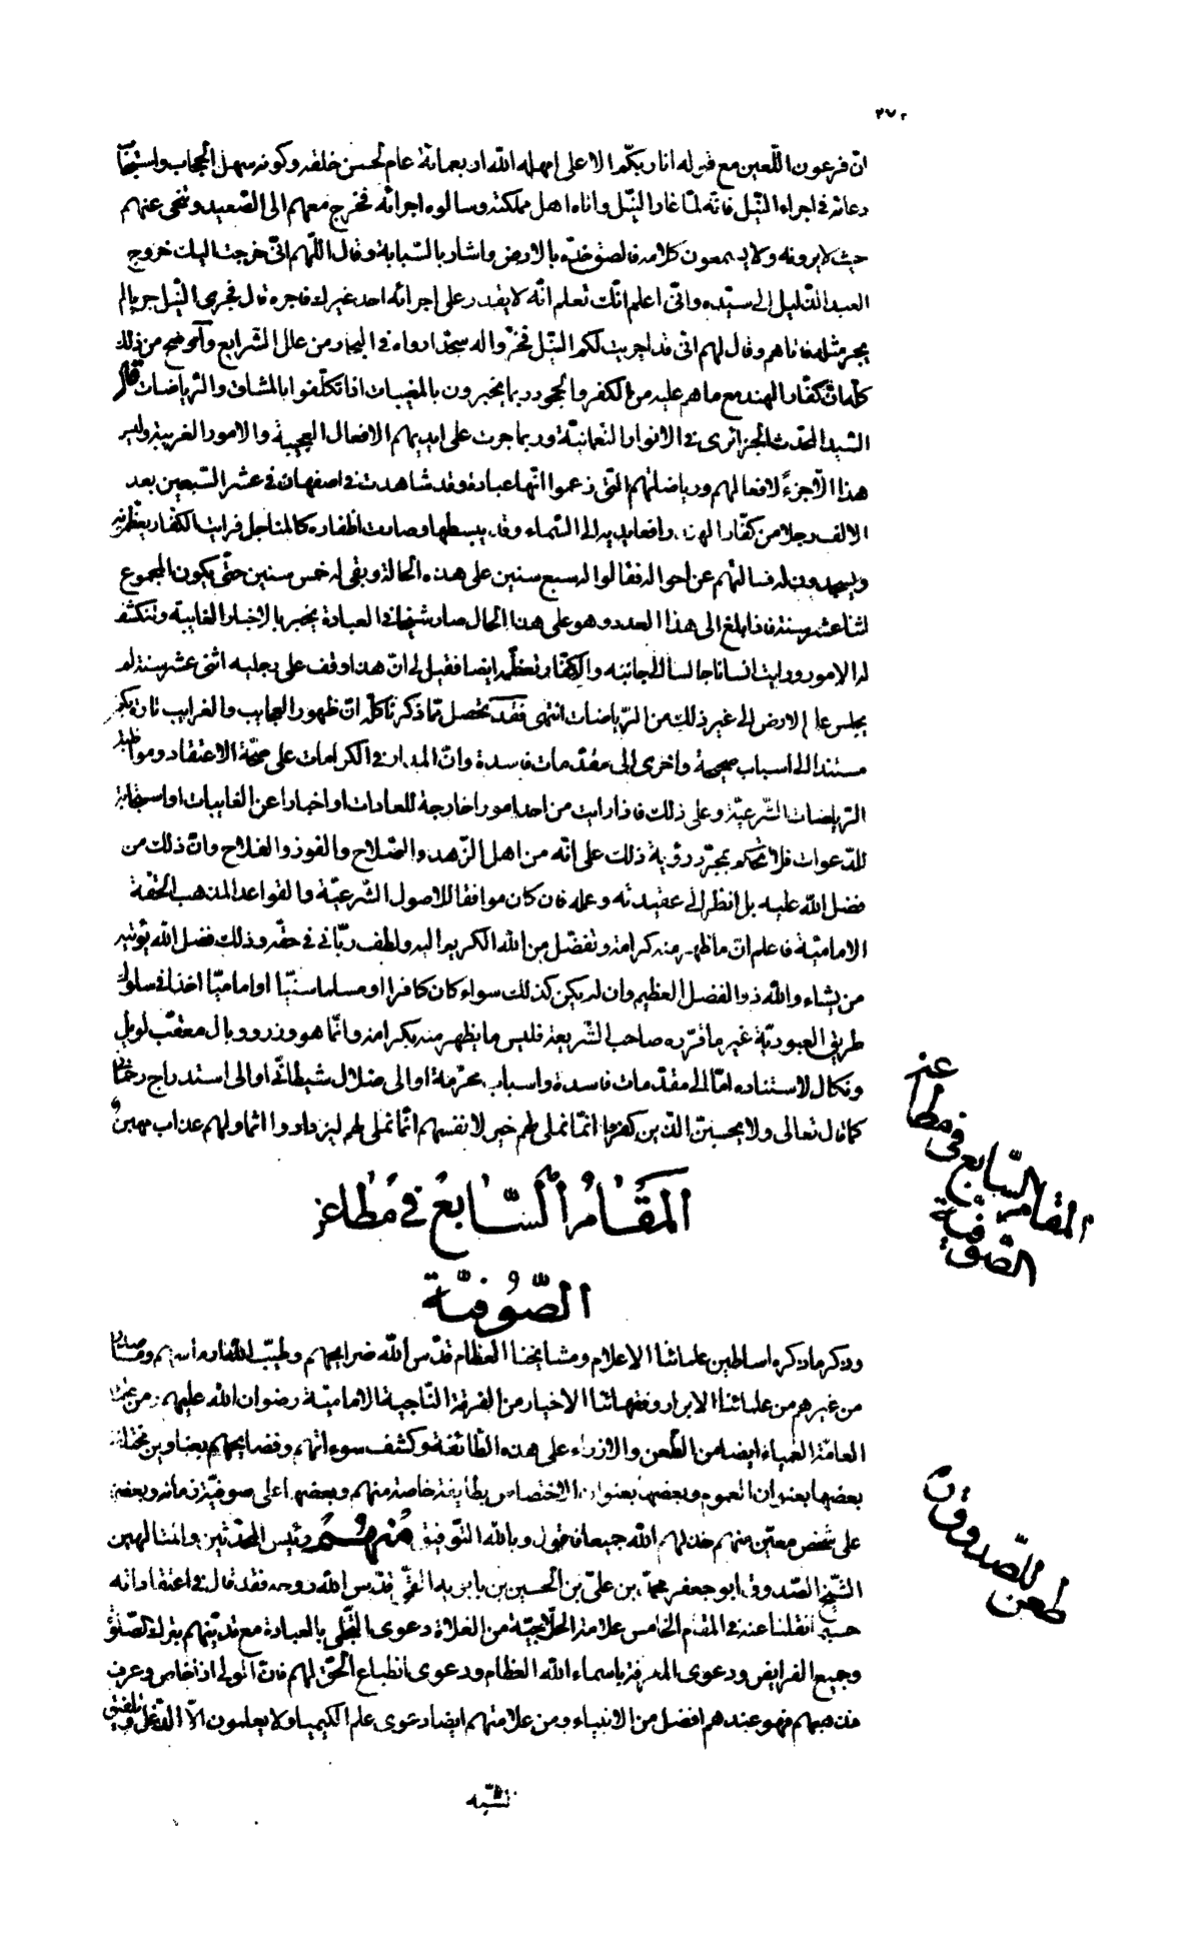 ٢٧٠
ان فرعون اللعين مع قوله انا ربكم الاعلى امهله الله اربعمائة عام لحسن خلقه وكونه سهل الحجاب واستجاب
دعائه فى اجراء النيل فانه لمّا غار النيل واتاه اهل مملكته وسالوه اجرائه فخرج معهم الى الصعيد وتنحى عنهم
حيث لا يرونه ولا يسمعون كلامه فالصق خدّه بالارض واشار بالسّبابة وقال اللّهم انّى خرجت اليك خروج
العبد الذليل الى سيّده وانّى اعلم انّك تعلم انّه لا يقدر على اجرائه احد غيرك فاجره قال فجرى النيل جريا لم
يجر مثله فاتاهم وقال لهم انى قد اجريت لكم النيل فخرّوا له سجّدا رواه فى البحار من علل الشرايع وأوضح من ذلك
كلّه انّ كفّار الهند مع ما هم عليه من الكفر والجحود ربما يخبرون بالمغيبات اذا تكلّفوا بالمشاق والرياضات قال
السّيد المحدّث الجزائرى فى الانوار النعمانيّة وربما جرت على ايديهم الافعال العجيبة والامور الغريبة وليس
هذا الّا جزءً لافعالهم ورياضاتهم التى زعموا انّها عبادة وقد شاهدت فى اصفهان فى عشر السّبعين بعد
الالف رجلا من كفّار الهند رافعا يديه الى السّماء وقد يبسطها وصارت اظفاره كالمناجل فرايت الكفار يعظّمونه
ويسجدون له فسالتهم عن احواله فقالوا له سبع سنين على هذه الحالة وبقى له خمس سنين حتّى يكون المجموع
اثنا عشر سنة فاذا بلغ الى هذا العدد وهو على هذا الحال صار شيخا فى العبادة يخبر بالاخبار الغايبة وتنكشف
له الامور ورايت انسانا جالسا الى جانبه والكفّار تعظّمه ايضا فقيل لى انّ هذا وقف على رجليه اثنى عشر سنة لم
يجلس على الارض الى غير ذلك من الرّياضات انتهى فقد تحصل ممّا ذكرنا كلّه انّ ظهور العجايب والغرايب تارة يكون
مستندا الى اسباب صحيحة واخرى الى مقدّمات فاسدة وانّ المدار فى الكرامات على صحّة الاعتقاد ومواظبة
الرّياضات الشّرعيّة وعلى ذلك فاذا رايت من احد امورا خارجة للعادات او اخبارا عن الغايبات او استجابة
للدّعوات فلا تحكم بمجرّد رؤية ذلك على انّه من اهل الزّهد والصّلاح والفوز والفلاح وانّ ذلك من
فضل الله عليه بل انظر الى عقيدته وعمله فان كان موافقا للاصول الشّرعيّة والقواعد المذهب الحقّة
الاماميّة فاعلم انّ ما ظهر منه كرامة وتفضّل من الله الكريم اليه ولطف ربّانى فى حقّه وذلك فضل الله يؤتيه
من يشاء والله ذو الفضل العظيم وان لم يكن كذلك سواء كان كافرا او مسلما سنّيا او اماميّا اخذا فى سلوك
طريق العبوديّة غير ما قرّره صاحب الشّريعة فليس ما يظهر منه بكرامة وانّما هو وزر ووبال معقّب لويل
ونكال لاستناده امّا الى مقدّمات فاسدة واسباب محرّمة او الى ضلال شيطانّى او الى استدراج رحمانى
كما قال تعالى ولا يحسبنّ الّذين كفروا انّما نملى لهم خير لانفسهم انّما نملى لهم ليزدادوا اثما ولهم عذاب مهين
المقام السّابع فى مطاعن
الصّوفيّة
المقام السّابع فى مطاعن
الصّوفيّة
وذكر ما ذكره اساطين علمائنا الاعلام ومشايخنا العظام قدّس الله ضرايحهم وطيّب الله
من غيرهم من علمائنا الابرار وفقهائنا الاخيار من الفرقة النّاجية الاماميّة رضوان الله عليهم ومن
العامّة العمياء ايضا من الطّعن والازراء على هذه الطّائفة وكشف سوءاتهم وفضايحهم بعناوين مختلفة
بعضها بعنوان العموم وبعضها بعنوان الاختصاص بطايفة خاصة منهم وبعضها على صوفيّة زمانه وبعضها
على شخص معيّن منهم خذلهم الله جميعا فاقول وبالله التّوفيق منهم رئيس المحدّثين والمتالهين
الشّيخ الصّدوق ابو جعفر محمّد بن علىّ بن الحسين بن بابويه القمّى قدّس الله روحه فقد قال فى اعتقاداته
حسبما نقلنا عنه فى المقام الخامس علامة الحلّاجيّة من الغلاة دعوى التّجلّى بالعبادة مع تديّنهم بترك الصّلوة
وجميع الفرايض ودعوى المعرفة باسماء الله العظام ودعوى انطباع الحقّ لهم فانّ الولى اذا خلص وعرف
مذهبهم فهو عندهم افضل من الانبياء ومن علامتهم ايضا دعوى علم الكيميا ولا يعلمون الّا الدّغل وتلفيق
طعن للصّدوق
تشبّه